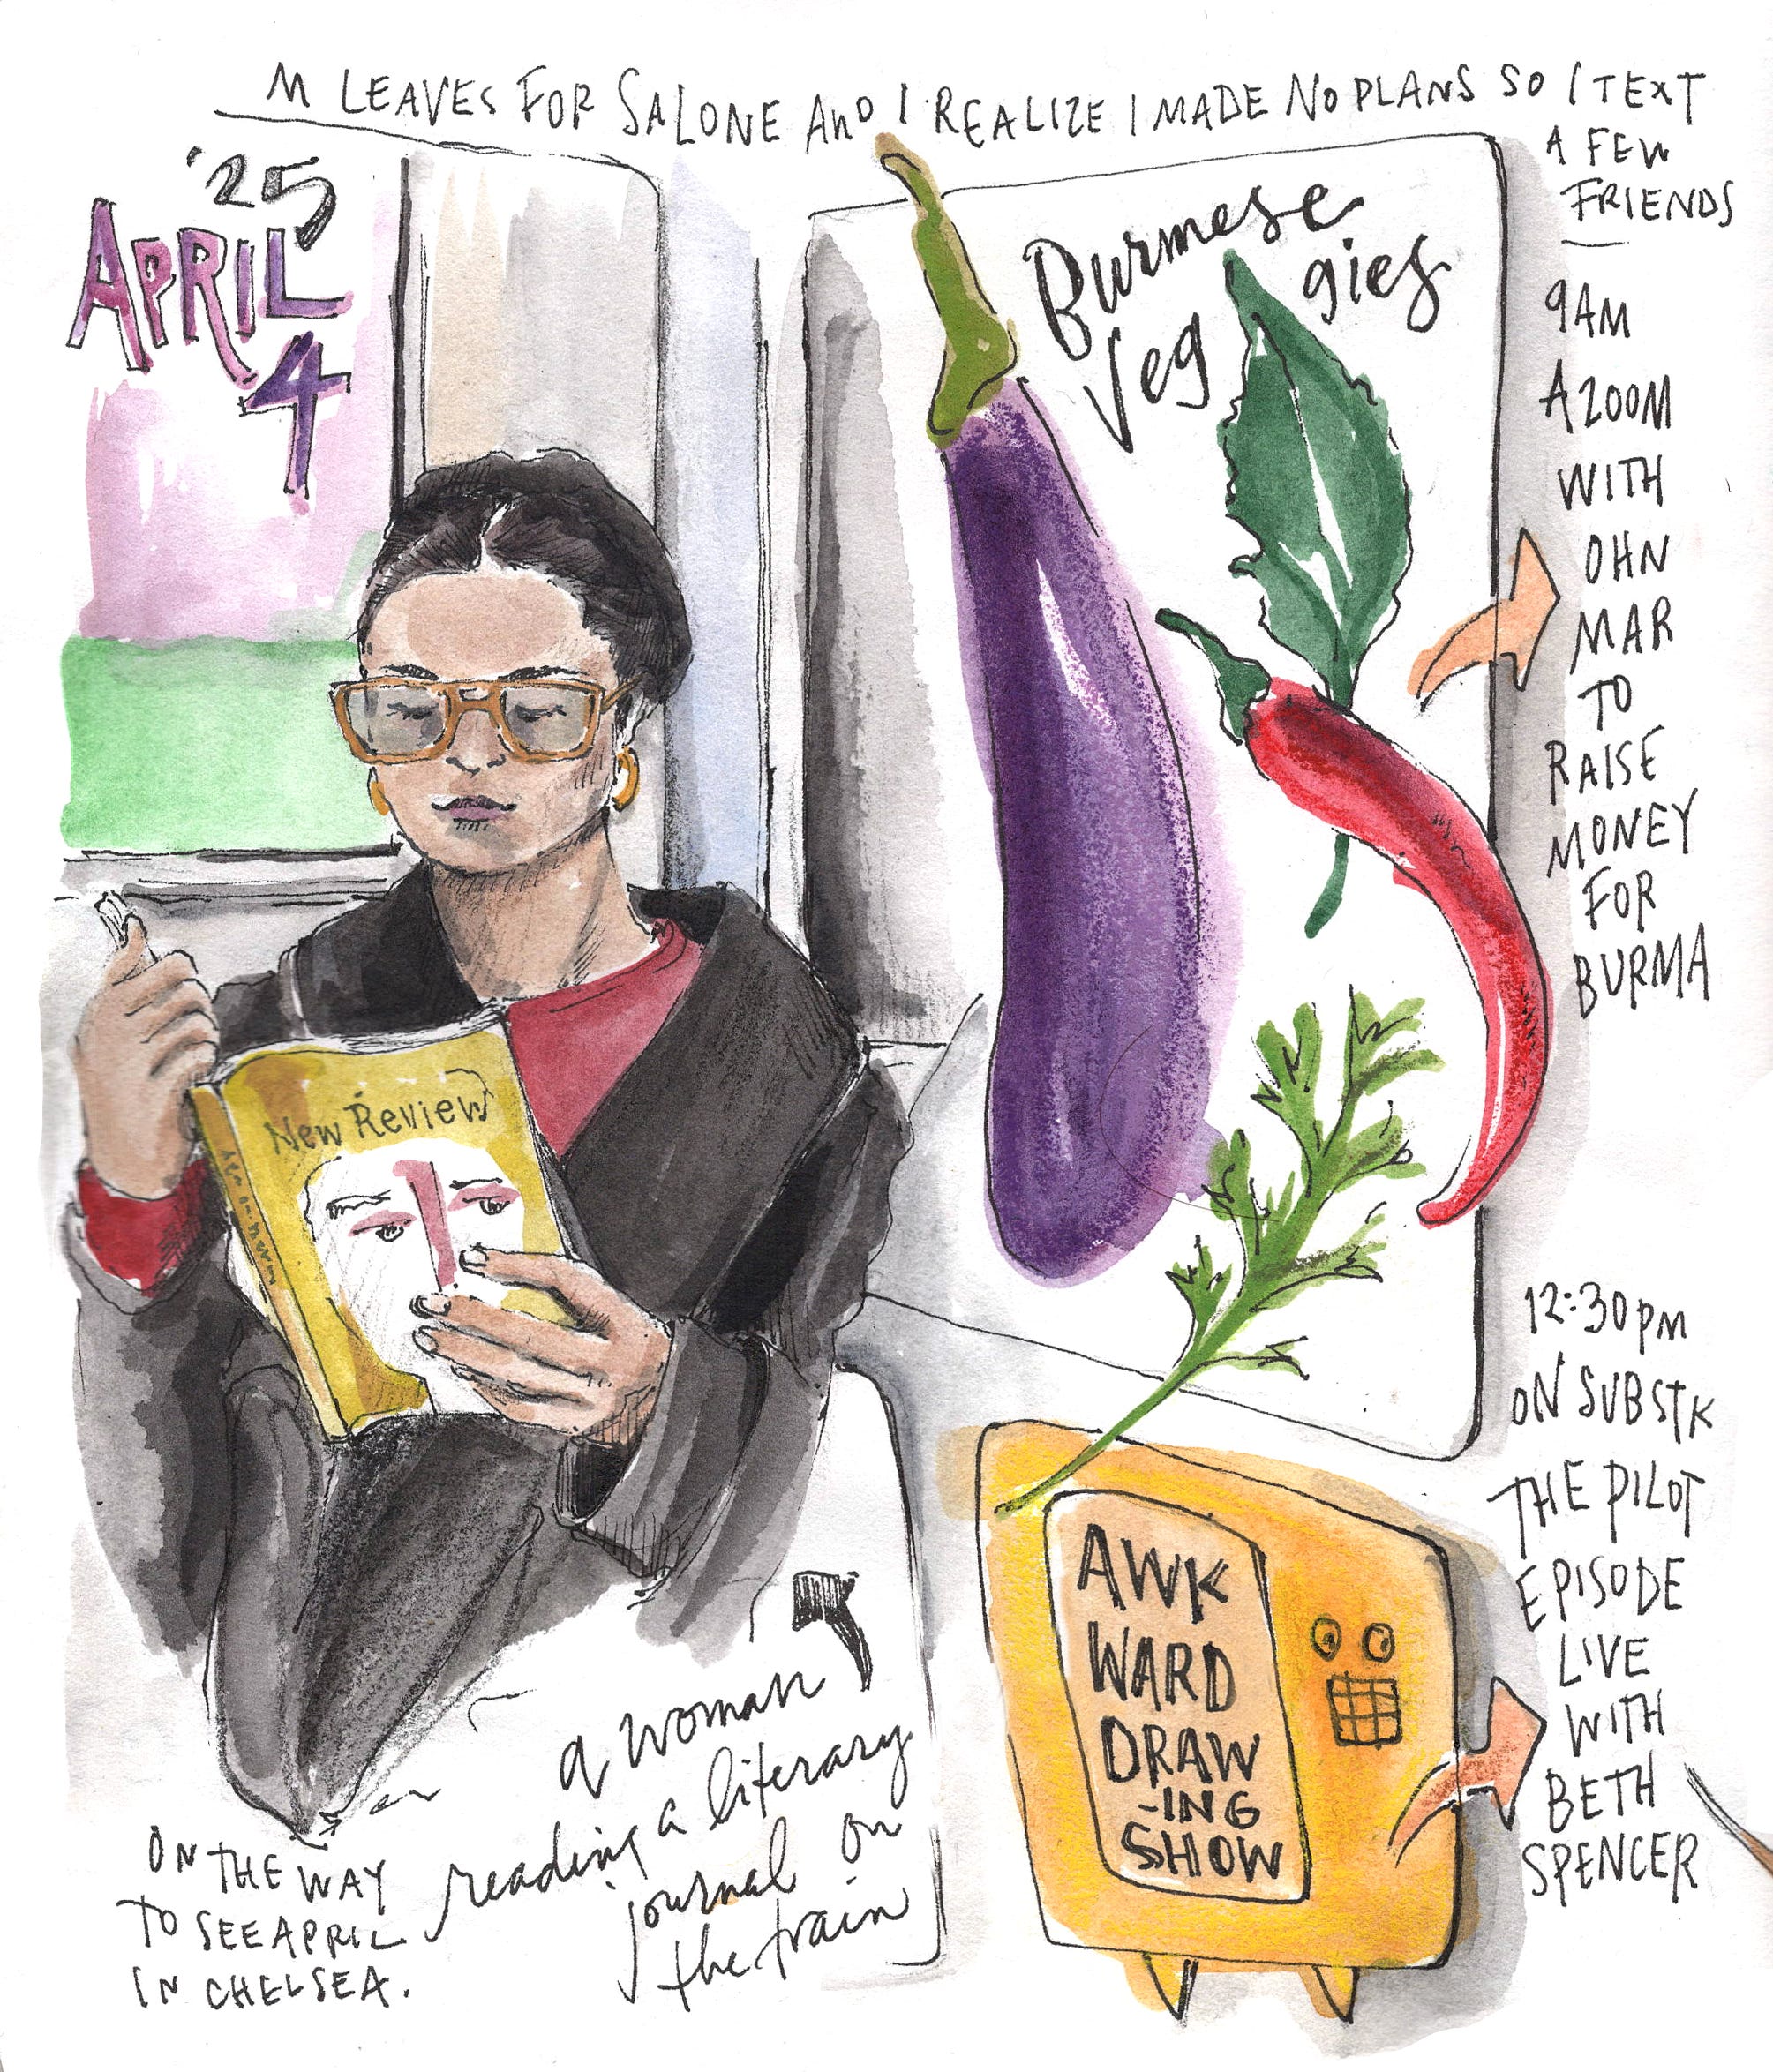 M LEAVES FOR SALONE AND I REALIZE I MADE NO PLANS SO I TEXT
A FEW
FRIENDS
'25
APRIL
4
Burmese
Veggies
9AM
A ZOOM
WITH
OHN
MAR
TO
RAISE
MONEY
FOR
BURMA
New Review
12:30pm
ON SUBSTK
THE PILOT
EPISODE
LIVE
WITH
BETH
SPENCER
AWK
WARD
DRAW
-ING
SHOW
a woman
reading a literary
journal on
the train
ON THE WAY
TO SEE APRIL
IN CHELSEA.